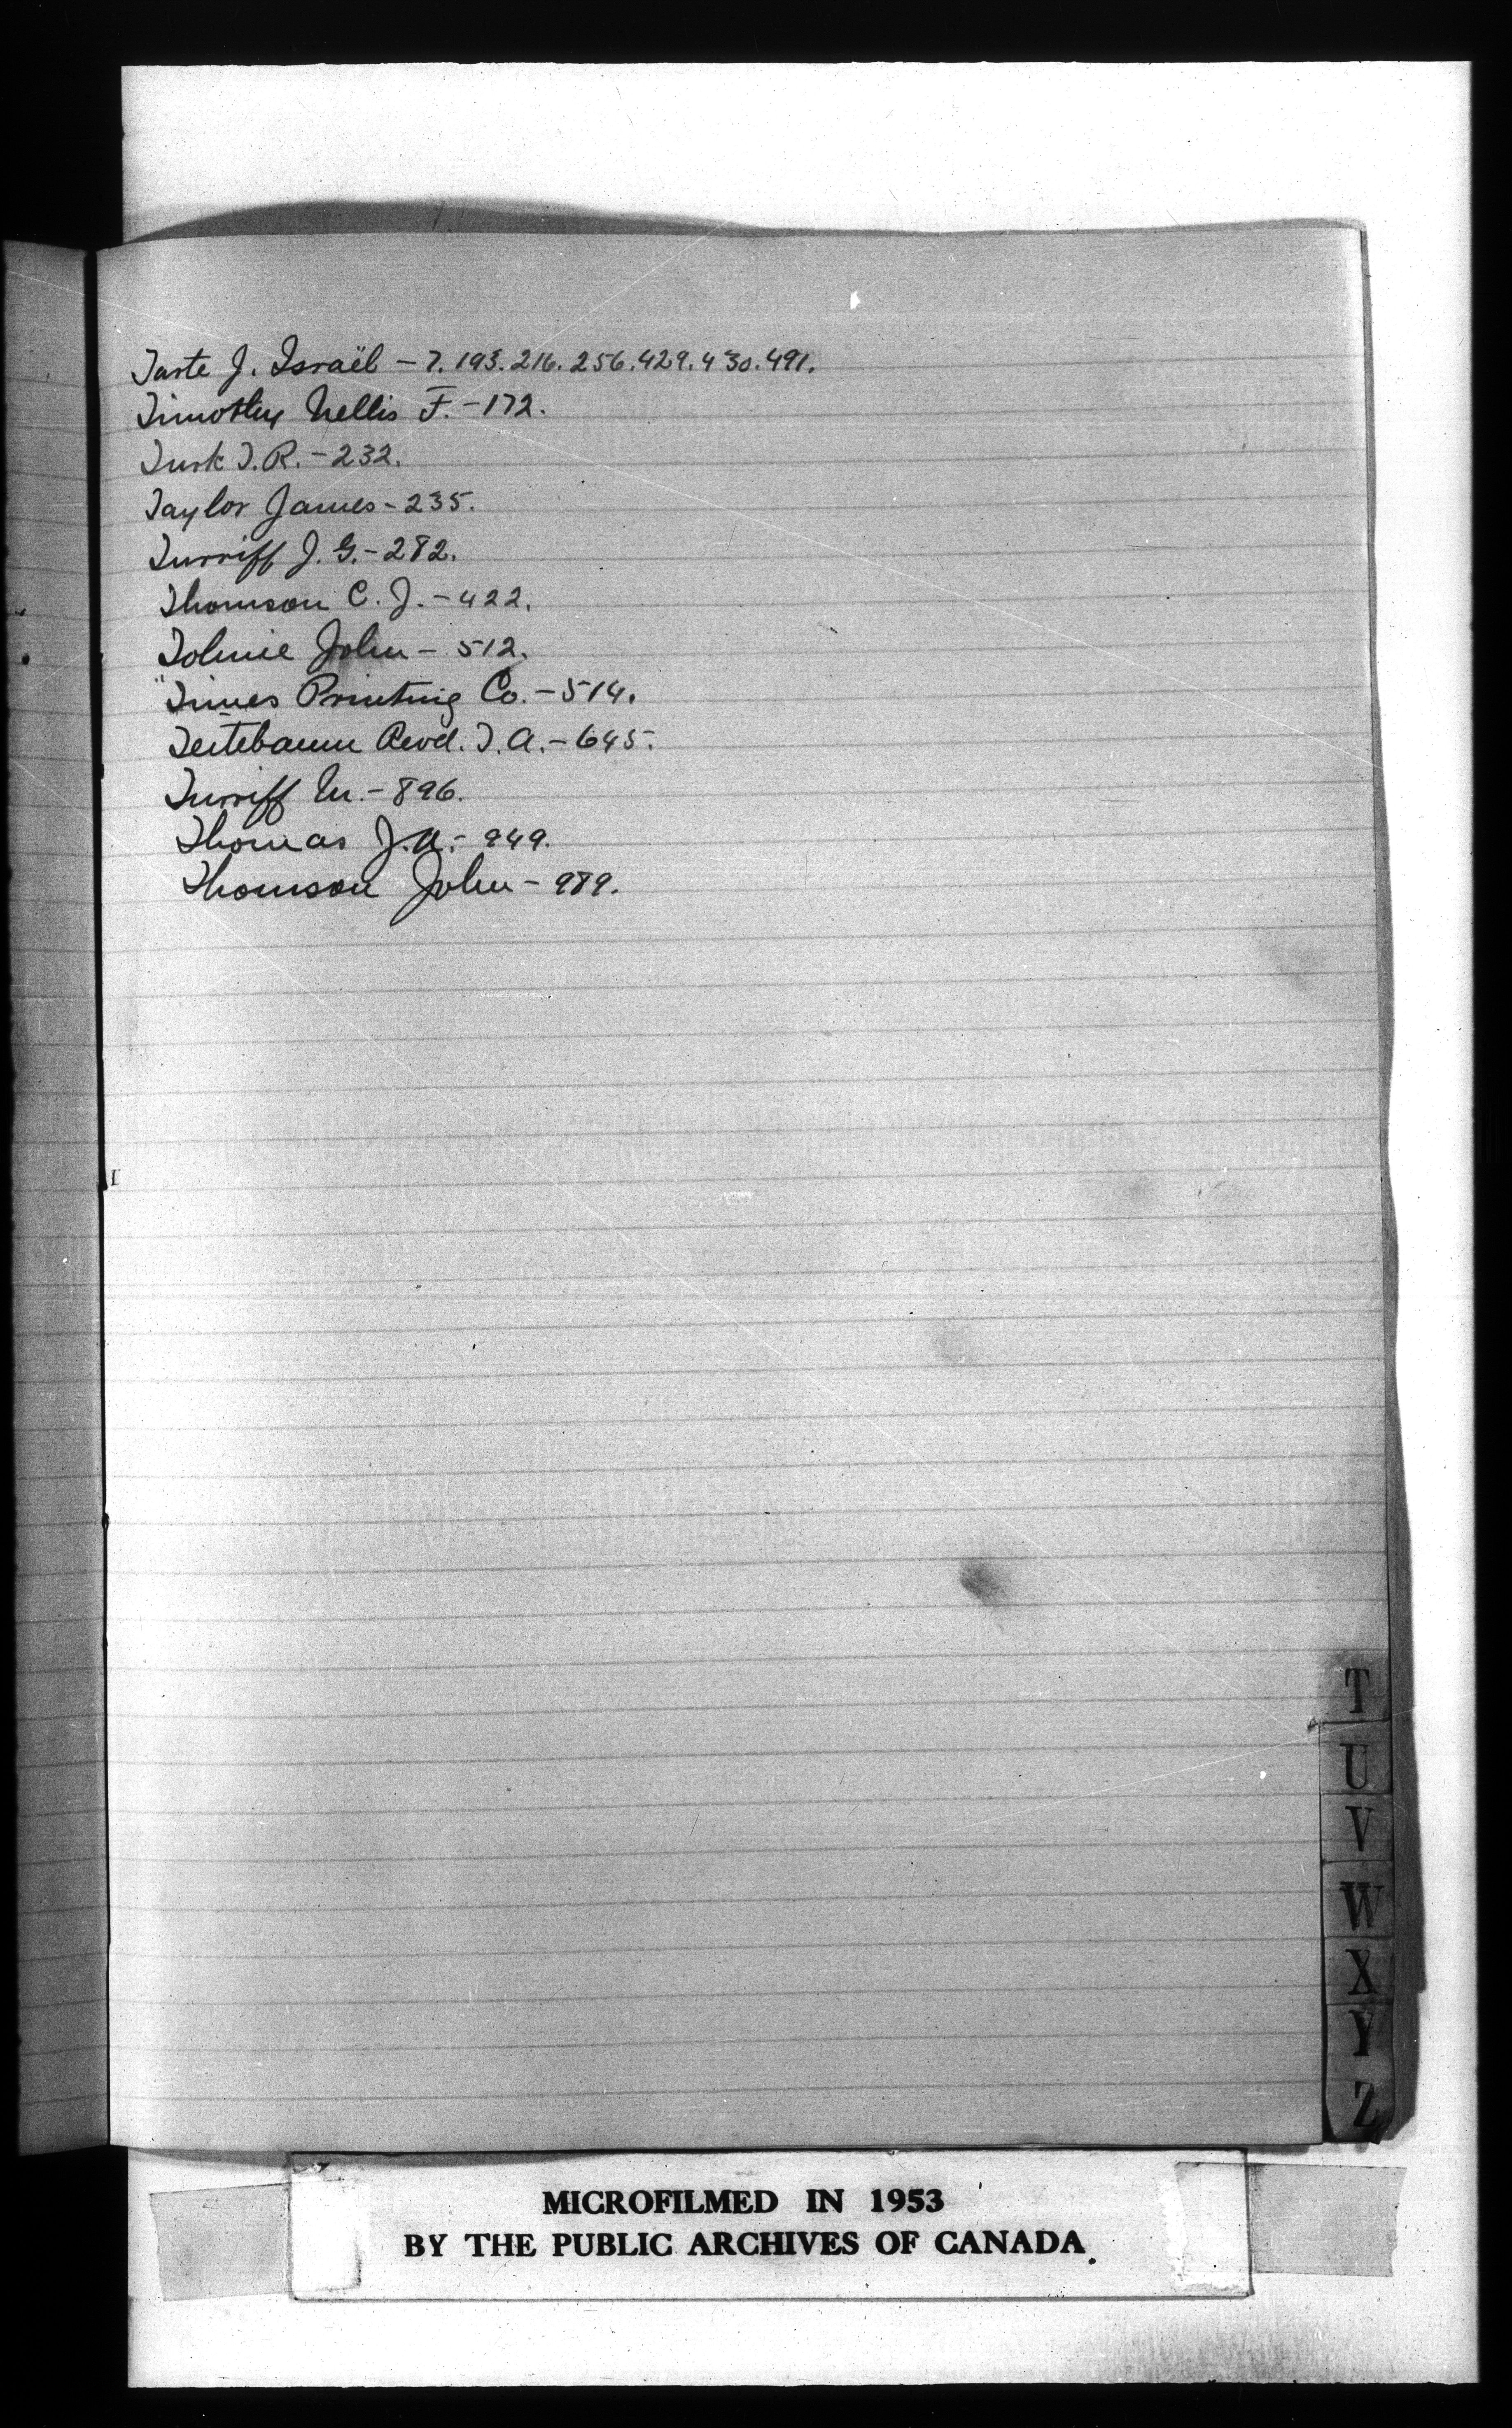 Tarte J. Israël – 7. 193. 216. 256. 429. 430. 491.
Timothy Nellis F. – 172.
Turk T. R. – 232.
Taylor James – 235.
Turriff J. G. – 282.
Thomson C. J. – 422.
Tolmie John – 512.
"Times Printing Co. – 514.
Teitebaum Revd. T. A. – 645.
Turriff M. – 896.
Thomas J. A. – 949.
Thomson John – 989.
T
U
V
W
X
Y
Z
MICROFILMED IN 1953
BY THE PUBLIC ARCHIVES OF CANADA